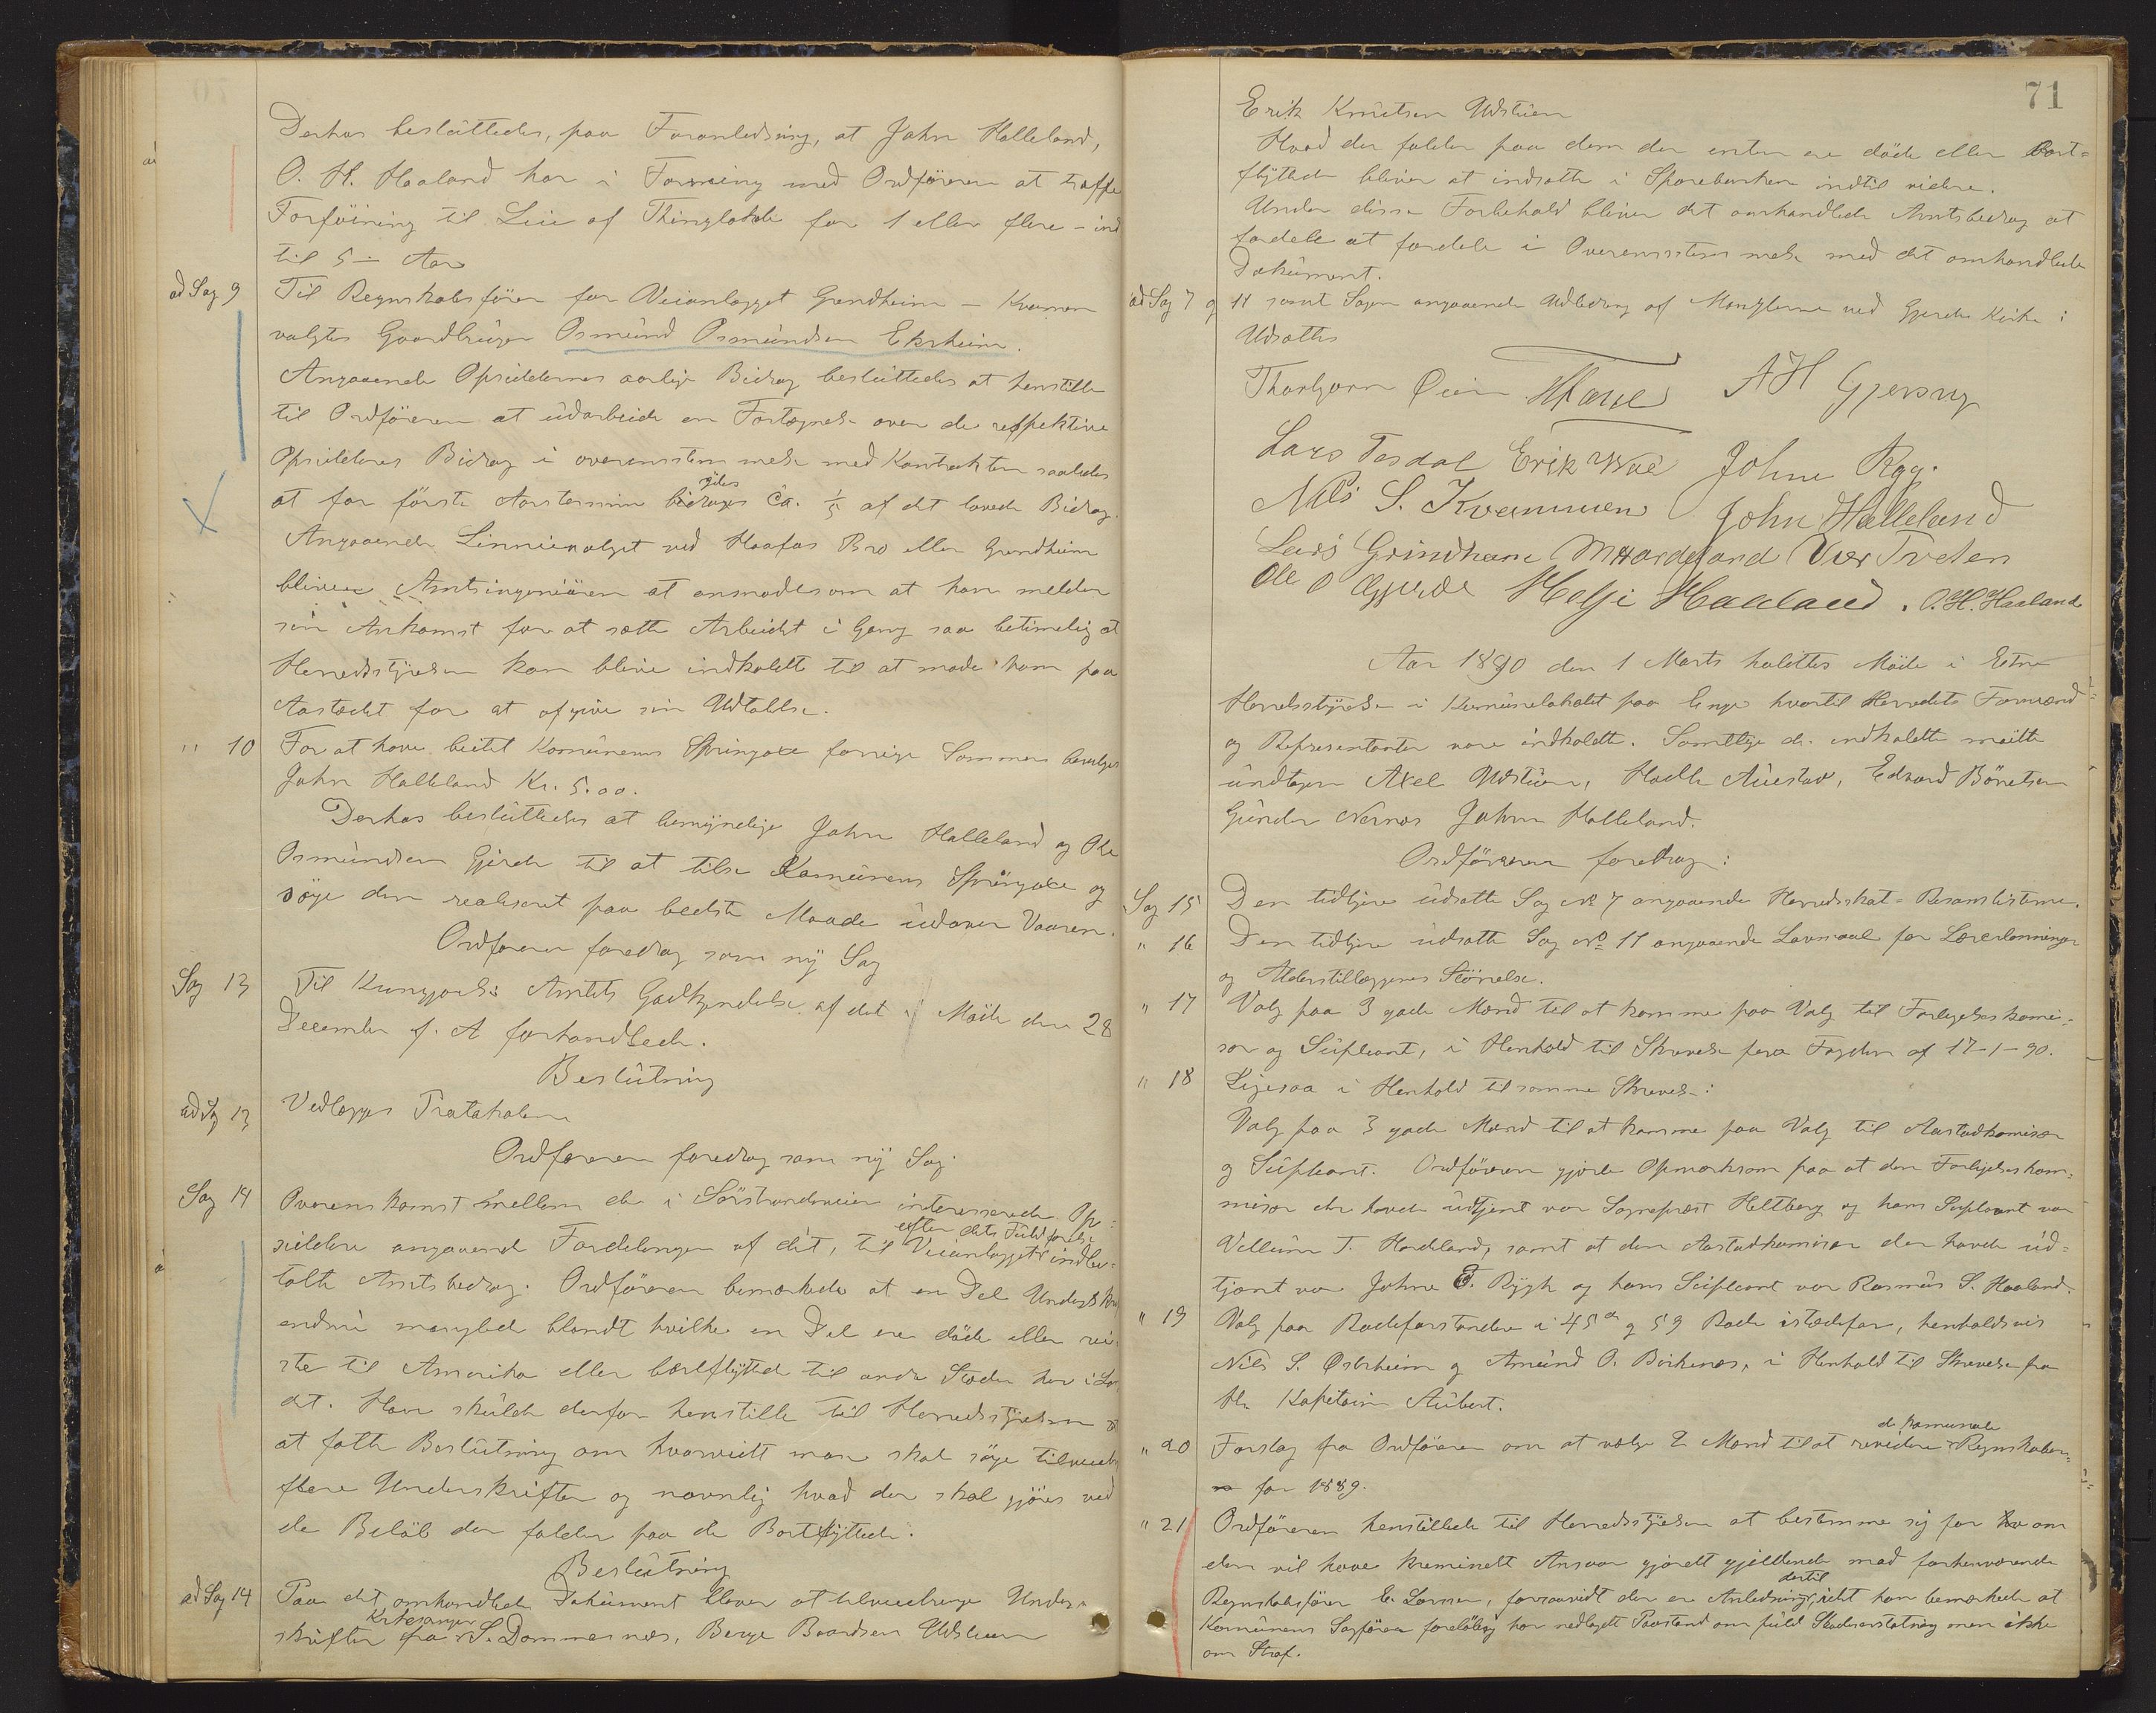 Derhos besluttedes, paa Foranledning, at John Halleland,
O. H. Haaland har i Forening med Ordföreren at træffe
Forföining til Leie af Thinglokale for 1 eller flere - ind
til 5 - Aar
ad Sag 9 Til Regnskabsförer for Veianlægget Grendheim - Kvamen
valgtes Gaardbruger Osmund Osmundsen Ekrheim.
Angaaende Opsiddernes aarlige Bidrag besluttedes at henstille
til Ordföreren at udarbeide en Fortegnelse over de respektive
Opsidderes Bidrag i overensstemmelse med Kontrakten saaledes
at for förste Aarstermin ydes ca. 1/5 af det lovede Bidrag.
Angaaende Linnievalget ved Haafas Bro eller Grendheim
bliver Amtsingeniören at anmodes om at han melder
sin Ankomst for at sætte Arbeidet i Gang saa betimelig at
Herredsstyrelsen kan blive indkaldt til at møde ham paa
Aastedet for at afgive sin Udtallelse.
" 10 For at have beitet Komunens Springoxe forrige Sommer bevilges
John Halleland Kr. 5.00.
Derhos besluttedes at bemyndige John Halleland og Ole
Osmundsen Gjerde til at tilse Komunens Springoxe og
söge den realiseret paa bedste Maade udover Vaaren.
Ordføreren foredrog som ny Sag
Sag 13 Til Kungjørelse Amtets Godkjendelse af det i Møde den 28
December f. A forhandlede.
Beslutning
ad Sag 13 Vedlægges Protokolen
Ordføreren foredrog som ny Sag
Sag 14 Overenskomst mellem de i Sörstrandsveien interesserede Op=
efter dets Fuldførelse
siddere angaaende Fordelingen af det, til Veianlægget indbe=
talte Amtsbedrag. Ordföreren bemærkede at en Del Underskr
endnu manglede blandt hvilke en Del ere döde eller rei
ste til Amerika eller bortflyttede til andre Steder her i Lan
det. Han skulde derfor henstille til Herredsstyrelsen
at fatte Beslutning om hvorvidt man skal söge tilveiebr
flere Underskrifter og navnlig hvad der skal gjöres ved
de Belöb der falder paa de Bortflyttede.
Beslutning
ad Sag 14 Paa det omhandlede Dokument bliver at tilveiebringe Under=
Kirkesanger
skrifter fra S. Dommersnes, Berge Baardsen Udstuen
71
Erik Knutsen Udstuen
Hvad der falder paa dem der enten ere döde eller bort=
flyttede bliver at indsætte i Sparebanken indtil videre.
Under disse Forbehold bliver det omhandlede Amtsbedrag at
fordele at fordele i Overensstemmelse med det omhandlede
Dokument.
ad Sag 7 og 11 samt Sagen angaaende Udbedring af Manglerne ved Gjerde Kirke:
Udsattes
Thorbjørn Øien HFane A H Gjersvig
Lars Tesdal Erik Moe Johne Ryg.
Nils S. Kvammen John Halleland
Lars Grindheim M Hardeland Iver Tveten
Ole O Gjerde Helje Haaland. O. H. Haaland
Aar 1890 den 1 Marts holdtes Möde i Etne
Herredsstyrelse i Komunelokalet paa Enge hvortil Herredets Formænd
og Representanter vare indkaldte. Samtlige de indkaldte mötte
undtagen Axel Udstuen, Halle Austad, Edvard Böretsen
Gunder Nernes John Halleland.
Ordföreren foredrog:
Sag 15 Den tidligere udsatte Sag № 7 angaaende Herredsskat-Resanslisterne.
" 16 Den tidligere udsatte Sag № 11 angaaende Lavmaal for Lærerlønninger
og Alderstillæggenes Störrelse.
" 17 Valg paa 3 gode Mænd til at komme paa Valg til Forligelseskomi=
sær og Supleant, i Henhold til Skrivelse fra Fogden af 17-1-90.
" 18 Ligesaa i Henhold til samme Skrivelse:
Valg paa 3 gode Mænd til at komme paa Valg til Aastadkomisær
og Supleant. Ordföreren gjorde Opmærksom paa at den Forligelseskom=
misær der havde udtjent var Sogneprest Heltberg og hans Supleant var
Vellum T. Hardeland, samt at den Aastadkomisær der havde ud=
tjent var Johne E. Rygh og hans Supleant var Rasmus S. Haaland.
" 19 Valg paa Rodeforstandere i 45de og 59 Rode istedetfor, henholdsvis
Nils S. Østrheim og Amund O. Birkenes, i Henhold til Skrivelse fra
Hr. Kapitain Aubert.
de komunale
" 20 Forslag fra Ordföreren om at vælge 2 Mænd til at revidere Regnskaber=
for 1889.
" 21 Ordföreren henstillede til Herredsstyrelsen at bestemme sig for om
den vil have kriminelt Ansvar gjordt gjældende mod forhenværende
dertil
Regnskabsförer E. Larsen, forsaavidt der er Anledning, idet han bemærkede at
Komunens Sagförer foreløbig har nedlagt Paastand om fuld Skadeserstatning men ikke
om Straf.